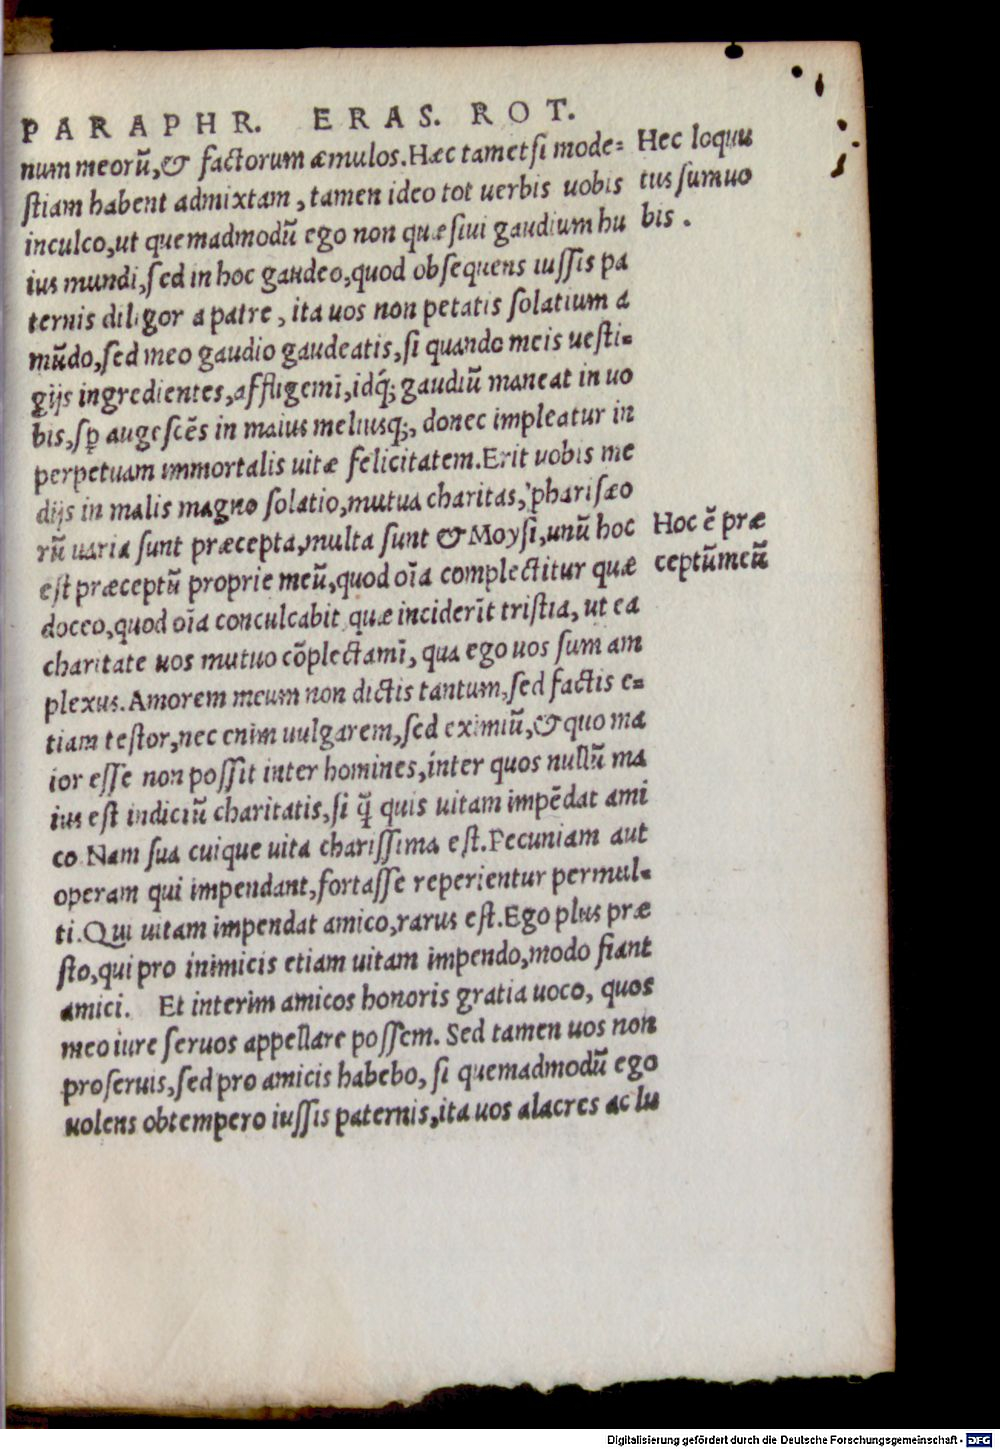 PARAPHR. ERAS. ROT.
num meorū, & factorum æmulos. Hæc tametsi mode=
stiam habent admixtam, tamen ideo tot uerbis uobis
inculco, ut quemadmodū ego non quæsiui gaudium hu
ius mundi, sed in hoc gaudeo, quod obsequens iussis pa
ternis diligor a patre, ita uos non petatis solatium a
mūdo, sed meo gaudio gaudeatis, si quando meis uesti=
gijs ingredientes, affligemī, idq́; gaudiū maneat in uo
bis, sꝑ augescēs in maius meliusq;, donec impleatur in
perpetuam immortalis uitæ felicitatem. Erit uobis me
dijs in malis magno solatio, mutua charitas, pharisæo
rū uaria sunt præcepta, multa sunt & Moysi, unū hoc
est præceptū proprie meū, quod oīa complectitur quæ
doceo, quod oīa conculcabit quæ inciderīt tristia, ut ea
charitate uos mutuo cōplectamī, qua ego uos sum am
plexus. Amorem meum non dictis tantum, sed factis e=
tiam testor, nec enim uulgarem, sed eximiū, & quo ma
ior esse non possit inter homines, inter quos nullū ma
ius est indiciū charitatis, si q̄ quis uitam impēdat ami
co. Nam sua cuique uita charissima est. Pecuniam aut
operam qui impendant, fortasse reperientur permul=
ti. Qui uitam impendat amico, rarus est. Ego plus præ
sto, qui pro inimicis etiam uitam impendo, modo fiant
amici. Et interim amicos honoris gratia uoco, quos
meo iure seruos appellare possem. Sed tamen uos non
pro seruis, sed pro amicis habebo, si quemadmodū ego
uolens obtempero iussis paternis, ita uos alacres ac lu
Hec loquu
tus sum uo
bis.
Hoc ē præ
ceptū meū
Digitalisierung gefördert durch die Deutsche Forschungsgemeinschaft - DFG